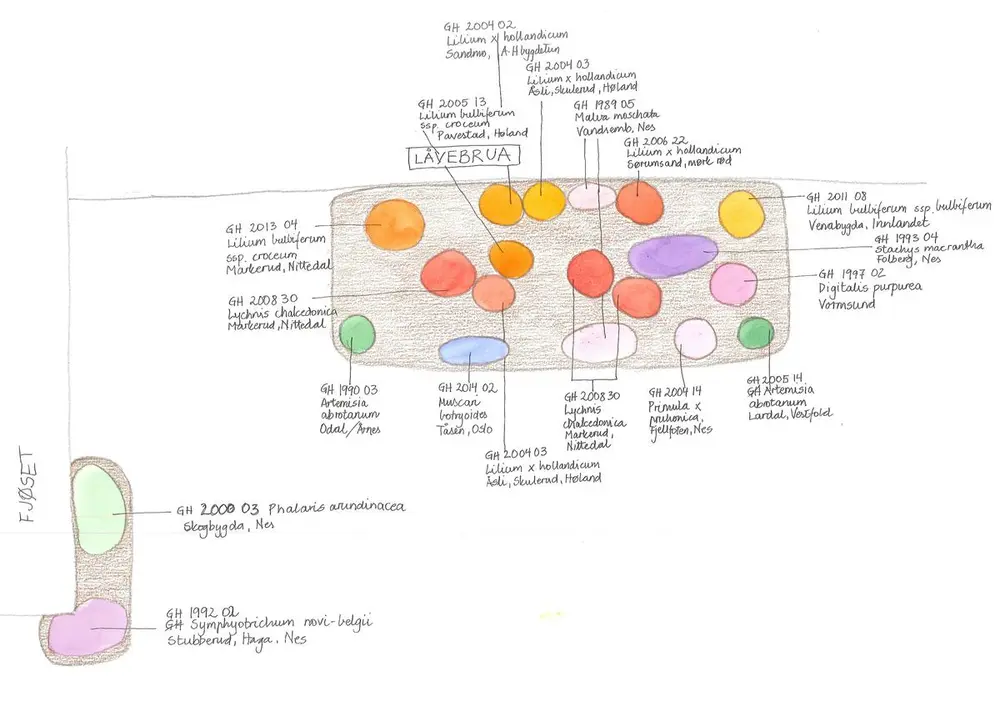 GH 2004 02
Lilium x hollandicum
Sandmo, A-H bygdetun
GH 2004 03
Lilium x hollandicum
Åsli, Skulerud, Høland
GH 2005 13
Lilium bulbiferum
ssp. croceum
Pavestad, Høland
GH 1989 05
Malva moschata
Vandsemb, Nes
LÅVEBRUA
GH 2006 22
Lilium x hollandicum
Sørumsand, mørk rød
GH 2011 08
Lilium bulbiferum ssp. bulbiferum
Venabygda, Innlandet
GH 2013 04
Lilium bulbiferum
ssp. croceum
Markerud, Nittedal
GH 1993 04
Stachys macrantha
Folberg, Nes
GH 1997 02
Digitalis purpurea
Vormsund
GH 2008 30
Lychnis chalcedonica
Markerud, Nittedal
GH 1990 03
Artemisia
abrotanum
Odal/Årnes
GH 2014 02
Muscari
botryoides
Tåsen, Oslo
GH 2008 30
Lychnis
chalcedonica
Markerud,
Nittedal
GH 2004 14
Primula x
pruhonica,
Fjellfoten, Nes
GH 2005 14
GH Artemisia
abrotanum
Lardal, Vestfold
GH 2004 03
Lilium x hollandicum
Åsli, Skulerud, Høland
FJØSET
GH 2000 03 Phalaris arundinacea
Skogbygda, Nes
GH 1992 02
GH Symphyotrichum novi-belgii
Stubberud, Haga, Nes